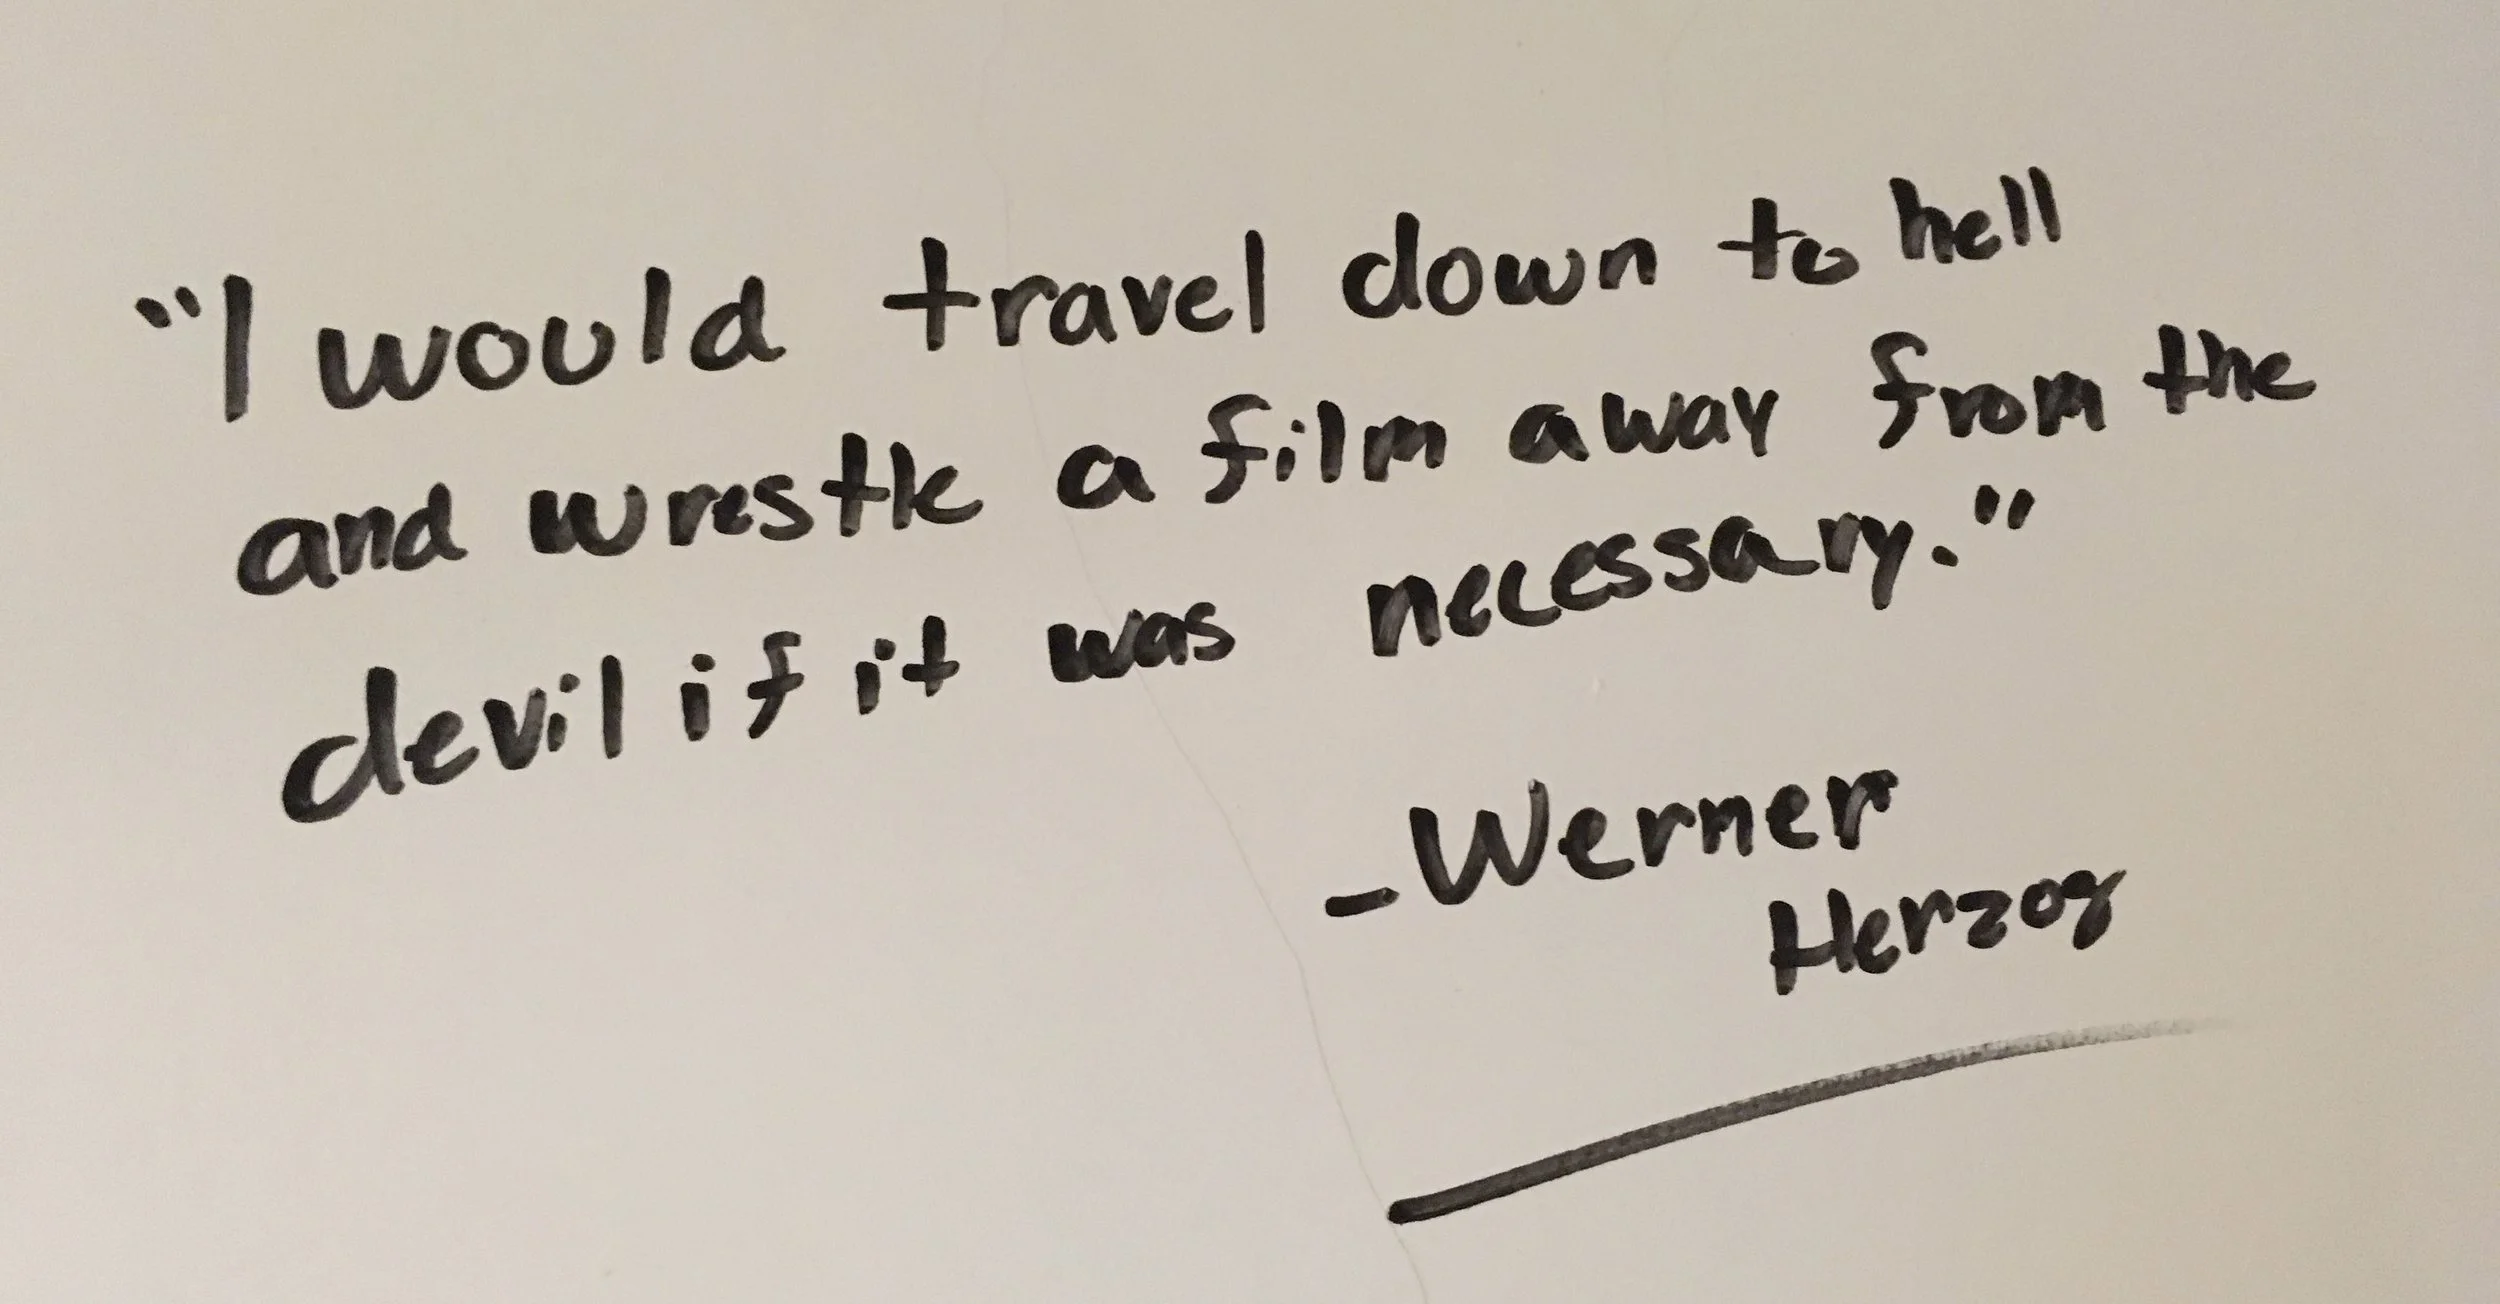 "I would travel down to hell
and wrestle a film away from the
devil if it was necessary."
-Werner
Herzog